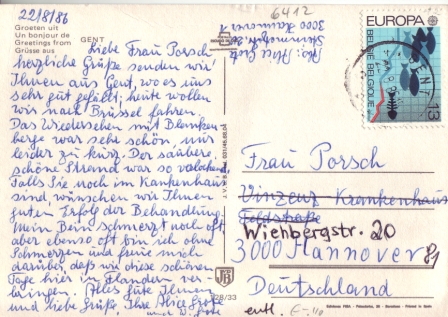 22/8/86
Groeten uit
Un bonjour de
Greetings from
Grüsse aus
GENT
Liebe Frau Porsch
herzliche Grüße senden wir
Ihnen aus Gent, wo es uns
sehr gut gefällt; heute wollen
wir nach Brüssel fahren.
Das Wiedersehen mit Blanken
berge war sehr schön, nur
leider zu kurz. Der saubere,
schöne Strand war so verlockend.
Falls Sie noch im Krankenhaus
sind, wünschen wir Ihnen
guten Erfolg der Behandlung.
Mein Bein schmerzt noch oft,
aber ebenso oft bin ich ohne
Schmerzen und freue mich
darüber, daß wir diese schönen
Tage hier in Flandern ver
bringen. Alles gute Ihnen
und liebe Grüße, Ihre Alice Grote
6412
Abs: Alice Grote
3000 Hannover 1
EUROPA
BELGIË BELGIQUE
13
GENT
Frau Porsch
Vinzenz Krankenhaus
Feldstraße
Wiehbergstr. 20
3000 Hannover 81
Deutschland
entl.
28/33